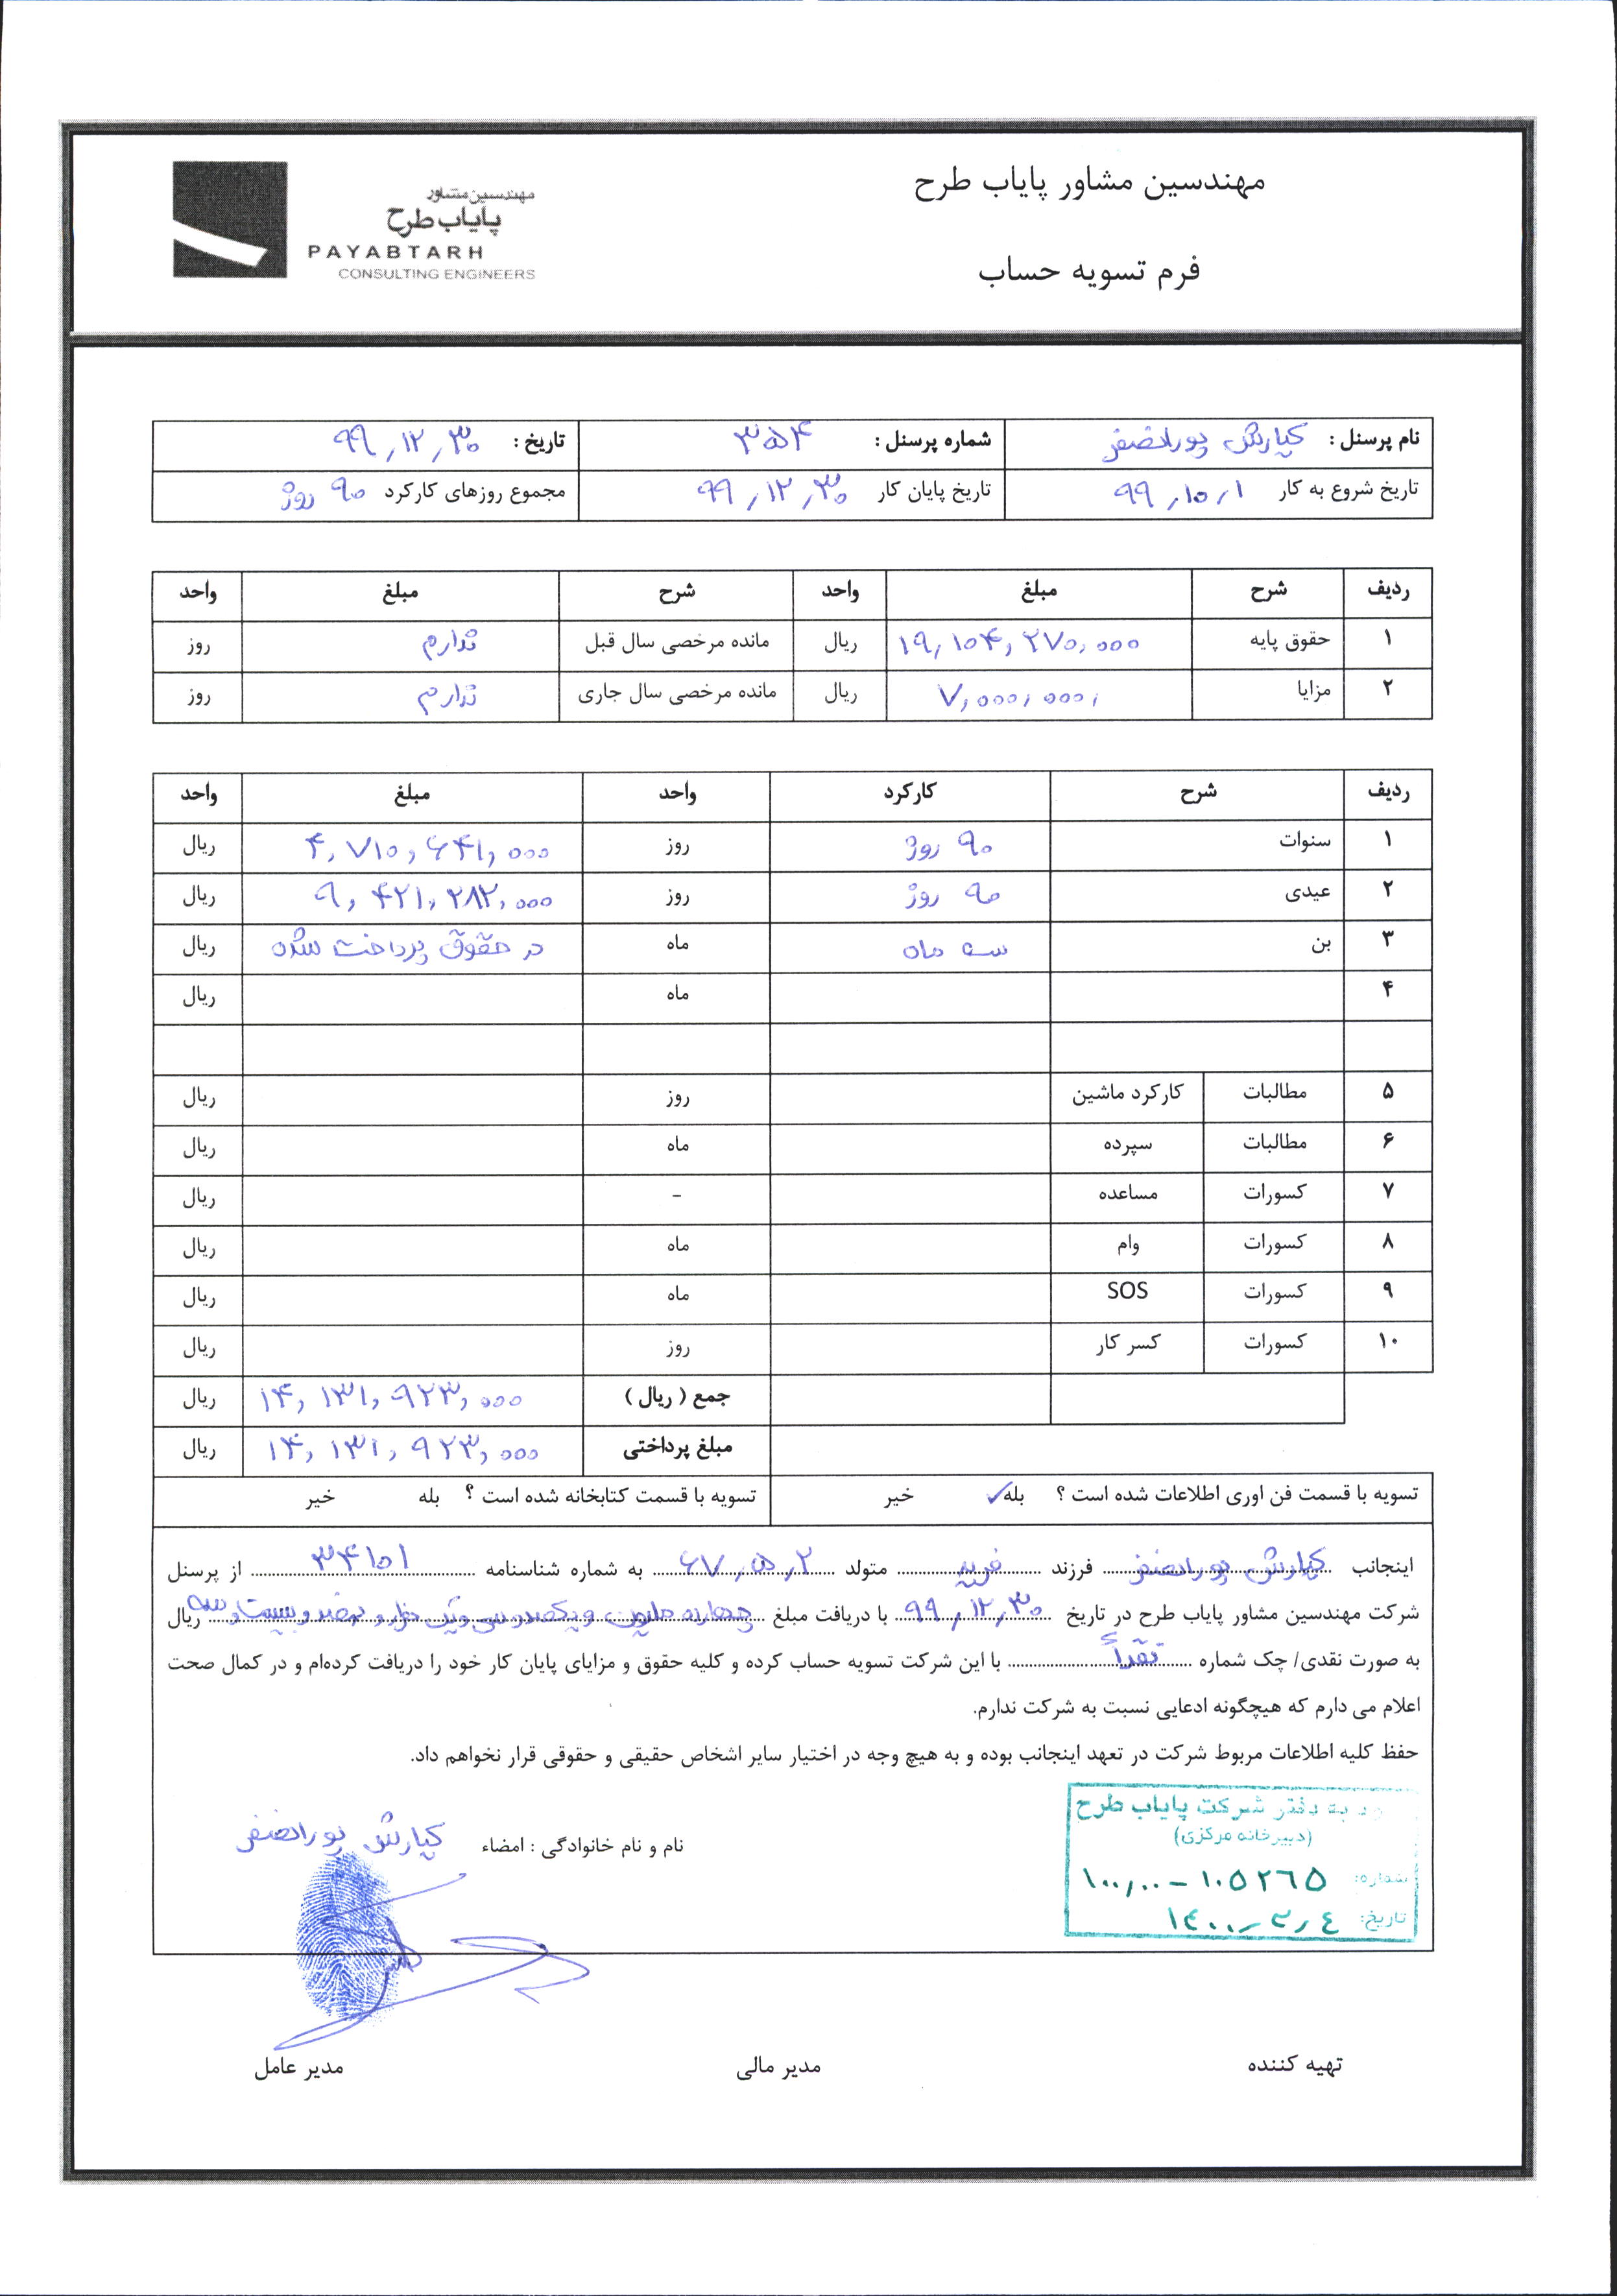 مهندسین مشاور پایاب طرح
مهندسین مشاور
پایاب طرح
PAYABTARH
CONSULTING ENGINEERS
فرم تسویه حساب
نام پرسنل : کیارش پورانصفر شماره پرسنل : ۳۵۴ تاریخ : ۹۹,۱۲,۳۰
تاریخ شروع به کار ۹۹,۱۰,۱ تاریخ پایان کار ۹۹,۱۲,۳۰ مجموع روزهای کارکرد ۹۰ روز
ردیف شرح مبلغ واحد شرح مبلغ واحد
۱ حقوق پایه ۱۹,۱۰۴,۲۷۰,۰۰۰ ریال مانده مرخصی سال قبل ندارم روز
۲ مزایا ۷,۰۰۰,۰۰۰, ریال مانده مرخصی سال جاری ندارم روز
ردیف شرح کارکرد واحد مبلغ واحد
۱ سنوات ۹۰ روز روز ۴,۷۱۰,۶۴۱,۰۰۰ ریال
۲ عیدی ۹۰ روز روز ۹,۴۲۱,۲۸۲,۰۰۰ ریال
۳ بن سه ماه ماه در حقوق پرداخت شده ریال
۴ ماه ریال
۵ مطالبات کارکرد ماشین روز ریال
۶ مطالبات سپرده ماه ریال
۷ کسورات مساعده - ریال
۸ کسورات وام ماه ریال
۹ کسورات SOS ماه ریال
۱۰ کسورات کسر کار روز ریال
جمع ( ریال ) ۱۴,۱۳۱,۹۲۳,۰۰۰ ریال
مبلغ پرداختی ۱۴,۱۳۱,۹۲۳,۰۰۰ ریال
تسویه با قسمت فن اوری اطلاعات شده است ؟ بله ✓ خیر تسویه با قسمت کتابخانه شده است ؟ بله خیر
اینجانب کیارش پورانصفر فرزند متولد ۶۷,۵,۲ به شماره شناسنامه ۳۴۱۰۱ از پرسنل
شرکت مهندسین مشاور پایاب طرح در تاریخ ۹۹,۱۲,۳۰ با دریافت مبلغ چهارده ملیون و یکصد و سی و یک هزار و نهصد و بیست و سه ریال
به صورت نقدی/ چک شماره نقداً با این شرکت تسویه حساب کرده و کلیه حقوق و مزایای پایان کار خود را دریافت کرده‌ام و در کمال صحت
اعلام می دارم که هیچگونه ادعایی نسبت به شرکت ندارم.
حفظ کلیه اطلاعات مربوط شرکت در تعهد اینجانب بوده و به هیچ وجه در اختیار سایر اشخاص حقیقی و حقوقی قرار نخواهم داد.
به دفتر شرکت پایاب طرح
(دبیرخانه مرکزی)
شماره: ۱۰۰,۰۰ - ۱۰۵۲۶۵
تاریخ: ۱۴۰۰,۲,۴
نام و نام خانوادگی : امضاء کیارش پورانصفر
تهیه کننده مدیر مالی مدیر عامل